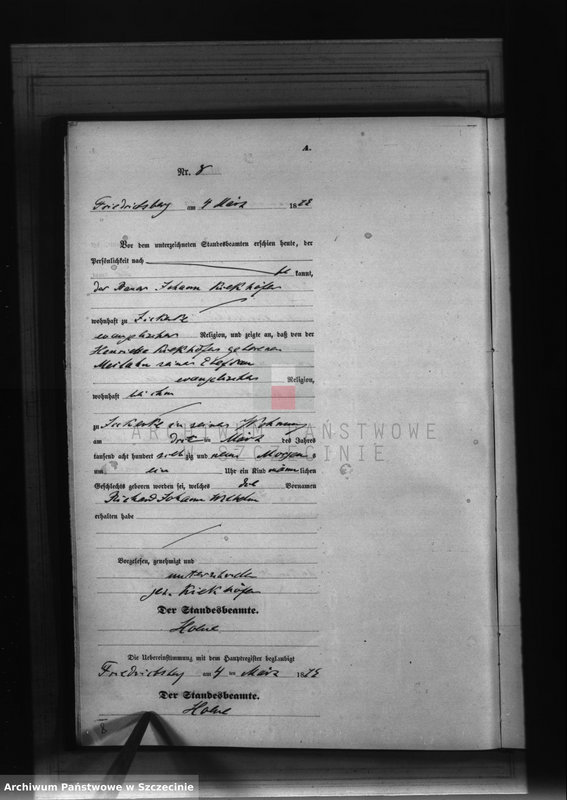 A.
Nr. 8
Friedrichsberg am 4 März 18
Vor dem unterzeichneten Standesbeamten erschien heute, der
Persönlichkeit nach
be kannt,
der Bauer Johann Kiekhöfer
wohnhaft zu
evangelischer Religion, und zeigte an, daß von der
Henriette Kiekhöfer geborenen
seiner Ehefrau
evangelischer Religion,
wohnhaft bei ihm
zu in seiner Wohnung
am März des Jahres
tausend acht hundert zig und Morgen s
um ein Uhr ein Kind männ lichen
Geschlechts geboren worden sei, welches die Vornamen
Richard Johann Wilhelm
erhalten habe
Vorgelesen, genehmigt und
unterschrieben
gez. Kiekhöfer
Der Standesbeamte.
Die Uebereinstimmung mit dem Hauptregister beglaubigt
Friedrichsberg am 4 ten März 18
Der Standesbeamte.
8
ARCHIWUM PAŃSTWOWE
SZCZECINIE
Archiwum Państwowe w Szczecinie